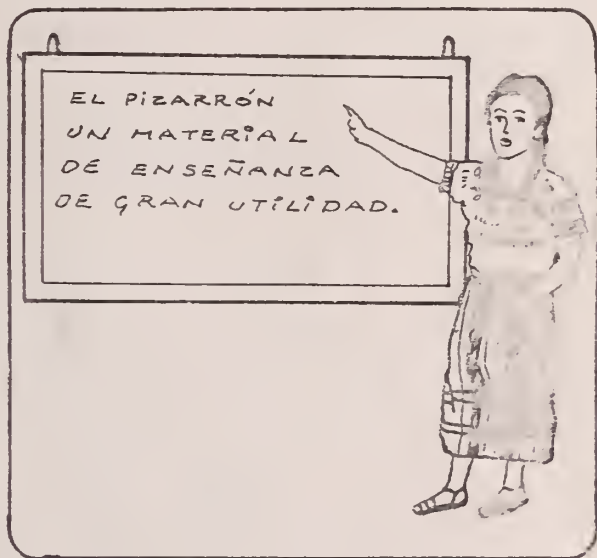 EL PIZARRÓN
UN MATERIAL
DE ENSEÑANZA
DE GRAN UTILIDAD.